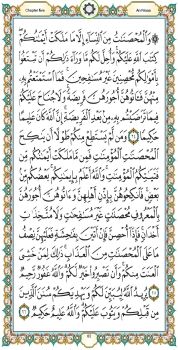 Chapter five An-Nisaa
۞ وَٱلْمُحْصَنَٰتُ مِنَ ٱلنِّسَآءِ إِلَّا مَا مَلَكَتْ أَيْمَٰنُكُمْ
كِتَٰبَ ٱللَّهِ عَلَيْكُمْ وَأُحِلَّ لَكُم مَّا وَرَآءَ ذَٰلِكُمْ أَن تَبْتَغُوا۟
بِأَمْوَٰلِكُم مُّحْصِنِينَ غَيْرَ مُسَٰفِحِينَ فَمَا ٱسْتَمْتَعْتُم بِهِۦ
مِنْهُنَّ فَـَٔاتُوهُنَّ أُجُورَهُنَّ فَرِيضَةً وَلَا جُنَاحَ عَلَيْكُمْ
فِيمَا تَرَٰضَيْتُم بِهِۦ مِنۢ بَعْدِ ٱلْفَرِيضَةِ إِنَّ ٱللَّهَ كَانَ عَلِيمًا
حَكِيمًا ٢٤ وَمَن لَّمْ يَسْتَطِعْ مِنكُمْ طَوْلًا أَن يَنكِحَ
ٱلْمُحْصَنَٰتِ ٱلْمُؤْمِنَٰتِ فَمِن مَّا مَلَكَتْ أَيْمَٰنُكُم مِّن
فَتَيَٰتِكُمُ ٱلْمُؤْمِنَٰتِ وَٱللَّهُ أَعْلَمُ بِإِيمَٰنِكُم بَعْضُكُم مِّنۢ
بَعْضٍ فَٱنكِحُوهُنَّ بِإِذْنِ أَهْلِهِنَّ وَءَاتُوهُنَّ أُجُورَهُنَّ
بِٱلْمَعْرُوفِ مُحْصَنَٰتٍ غَيْرَ مُسَٰفِحَٰتٍ وَلَا مُتَّخِذَٰتِ
أَخْدَانٍ فَإِذَآ أُحْصِنَّ فَإِنْ أَتَيْنَ بِفَٰحِشَةٍ فَعَلَيْهِنَّ نِصْفُ
مَا عَلَى ٱلْمُحْصَنَٰتِ مِنَ ٱلْعَذَابِ ذَٰلِكَ لِمَنْ خَشِىَ
ٱلْعَنَتَ مِنكُمْ وَأَن تَصْبِرُوا۟ خَيْرٌ لَّكُمْ وَٱللَّهُ غَفُورٌ رَّحِيمٌ
٢٥ يُرِيدُ ٱللَّهُ لِيُبَيِّنَ لَكُمْ وَيَهْدِيَكُمْ سُنَنَ ٱلَّذِينَ
مِن قَبْلِكُمْ وَيَتُوبَ عَلَيْكُمْ وَٱللَّهُ عَلِيمٌ حَكِيمٌ ٢٦